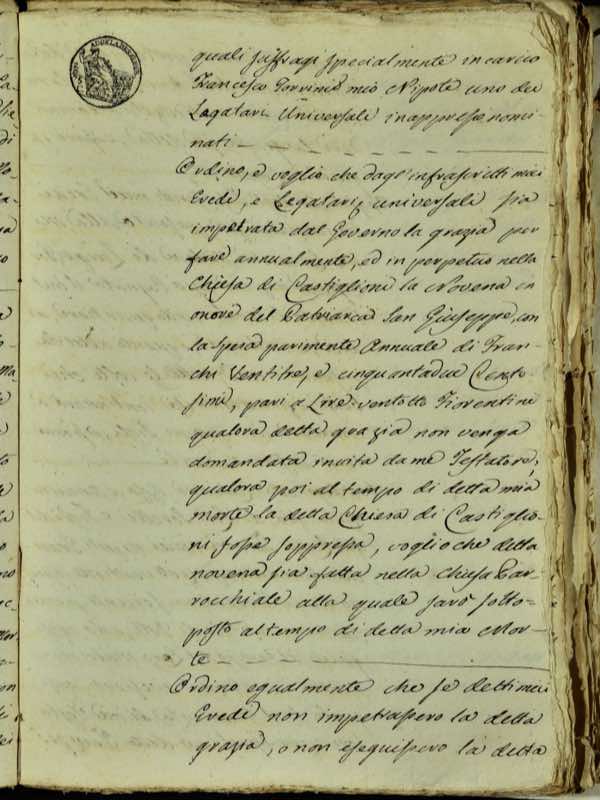 quali suffragi specialmente in carico
Francesco Torrini mio Nipote uno dei
Legatari Universali inappresso nomi-
nati
Ordino, e voglio che dagl'infrascritti miei
Eredi, e Legatari universali sia
impetrata dal Governo la grazia per
fare annualmente, ed in perpetuo nella
Chiesa di Castiglioni la Novena in
onore del Patriarca San Giuseppe, con
la spesa parimente Annuale di Fran-
chi Ventitre, e cinquantadue Cente
simi, pari a Lire ventotto Fiorentine
qualora detta grazia non venga
domandata in vita da me Testatore,
qualora poi al tempo di detta mia
morte la detta Chiesa di Castiglio-
ni fosse soppressa, voglio che detta
novena sia fatta nella Chiesa Par-
rocchiale alla quale sarò sotto=
posto al tempo di detta mia Mor-
te
Ordino egualmente che se detti miei
Eredi non impetrassero la detta
grazia, o non eseguissero la detta